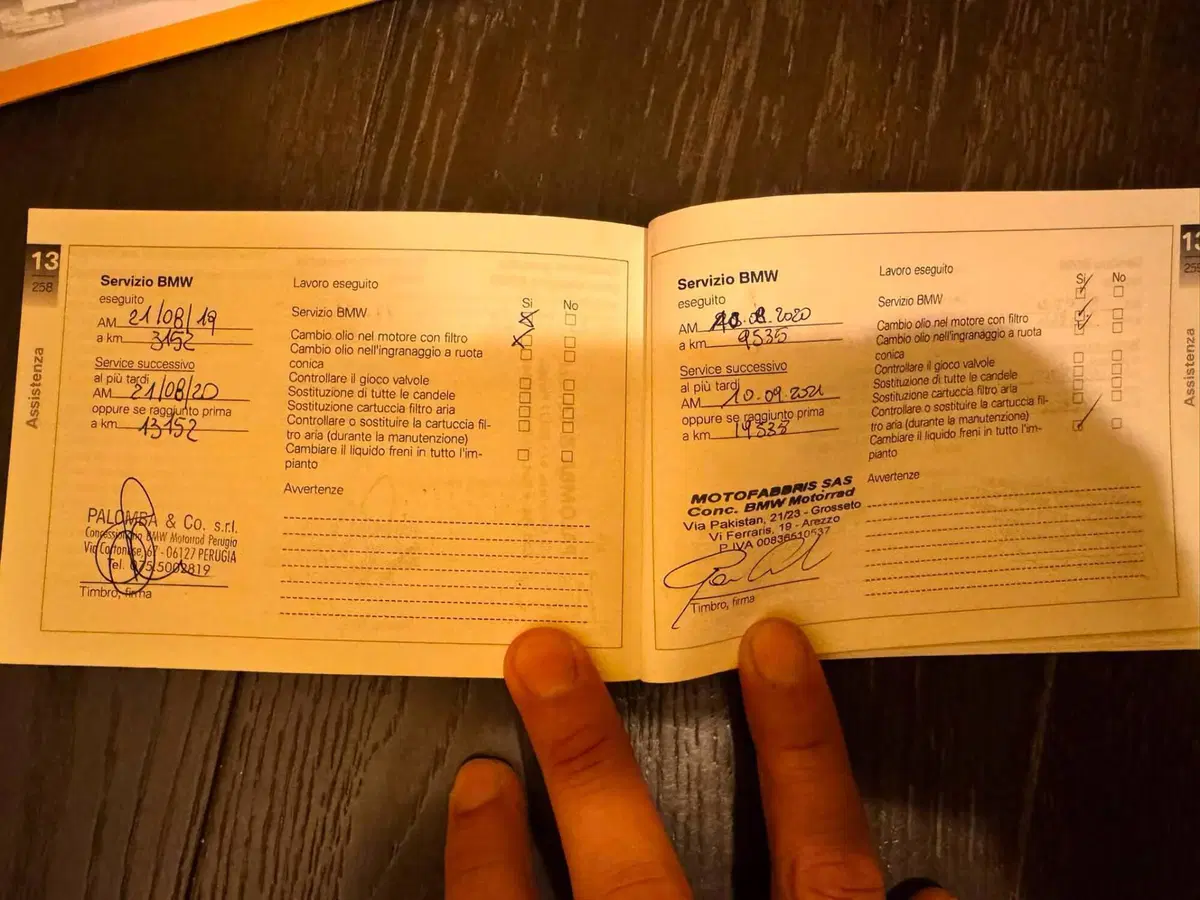 13
258
Assistenza
Servizio BMW
eseguito
AM 21/08/19
a km 3152
Service successivo
al più tardi
AM 21/08/20
oppure se raggiunto prima
a km 13152
PALOMBA & Co. s.r.l.
Concessionaria BMW Motorrad Perugia
Via Cortonese, 67 - 06127 PERUGIA
Tel. 075.5002819
Timbro, firma
Lavoro eseguito
Si No
Servizio BMW
Cambio olio nel motore con filtro
Cambio olio nell'ingranaggio a ruota
conica
Controllare il gioco valvole
Sostituzione di tutte le candele
Sostituzione cartuccia filtro aria
Controllare o sostituire la cartuccia fil-
tro aria (durante la manutenzione)
Cambiare il liquido freni in tutto l'im-
pianto
Avvertenze
Servizio BMW
eseguito
AM .08.2020
a km 9535
Service successivo
al più tardi
AM 10.09.2021
oppure se raggiunto prima
a km 19535
MOTOFABBRIS SAS
Conc. BMW Motorrad
Via Pakistan, 21/23 - Grosseto
Vi Ferraris, 19 - Arezzo
P.IVA 00836510537
Timbro, firma
Lavoro eseguito
Si No
Servizio BMW
Cambio olio nel motore con filtro
Cambio olio nell'ingranaggio a ruota
conica
Controllare il gioco valvole
Sostituzione di tutte le candele
Sostituzione cartuccia filtro aria
Controllare o sostituire la cartuccia fil-
tro aria (durante la manutenzione)
Cambiare il liquido freni in tutto l'im-
pianto
Avvertenze
13
Assistenza